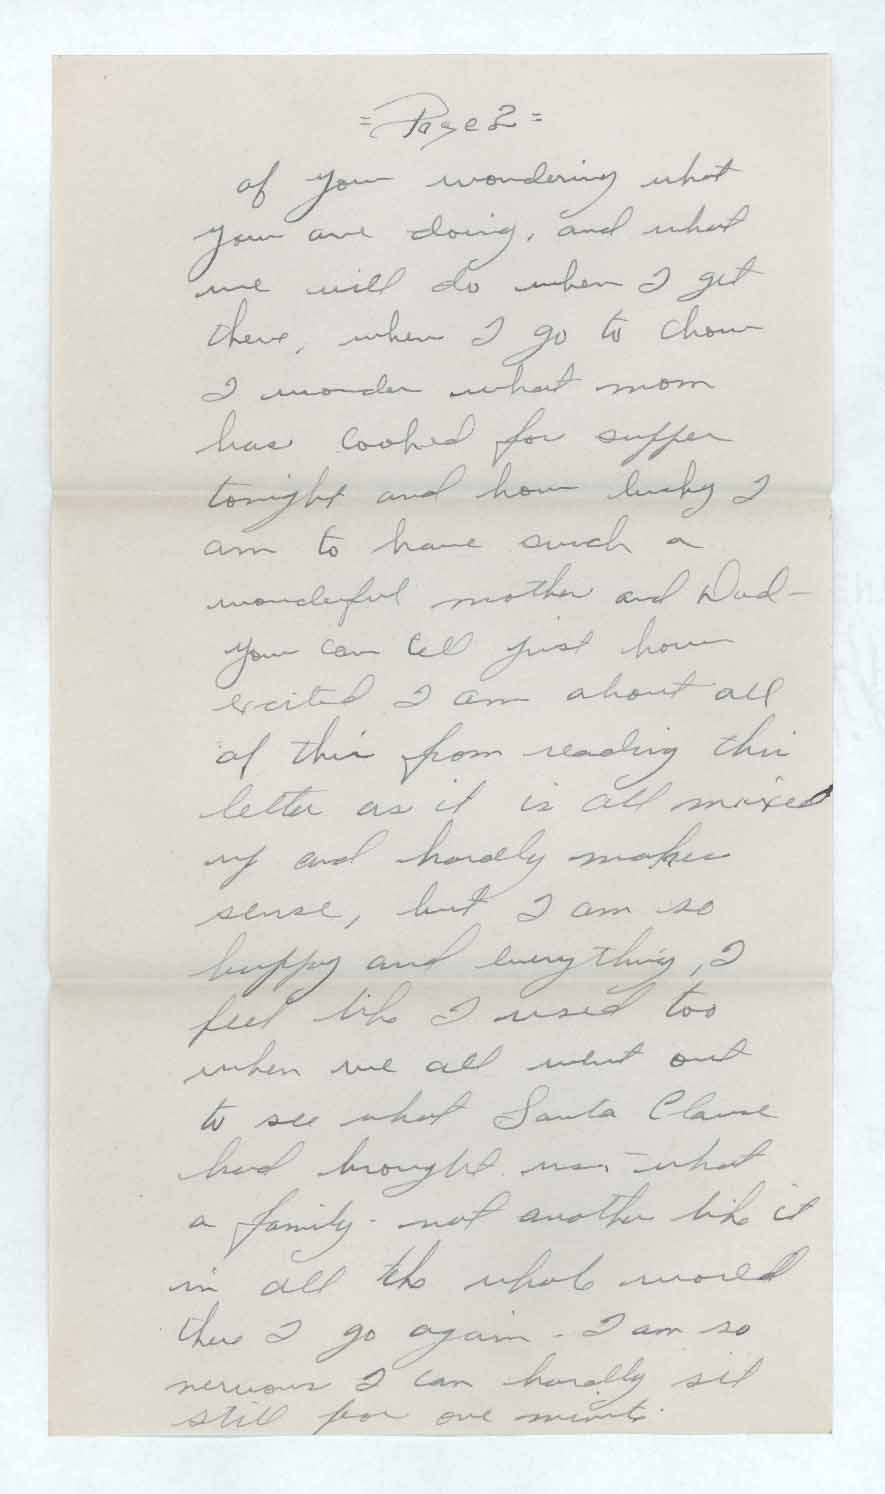 = Page 2 =
of you wondering what
you are doing, and what
we will do when I get
there, when I go to chow
I wonder what mom
has cooked for supper
tonight and how lucky I
am to have such a
wonderful mother and Dad -
you can tell just how
excited I am about all
of this from reading this
letter as it is all mixed
up and hardly makes
sense, but I am so
happy and everything, I
feel like I used too
when we all went out
to see what Santa Clause
had brought us. - what
a family - not another like it
in all the whole world
there I go again - I am so
nervous I can hardly sit
still for one minute.